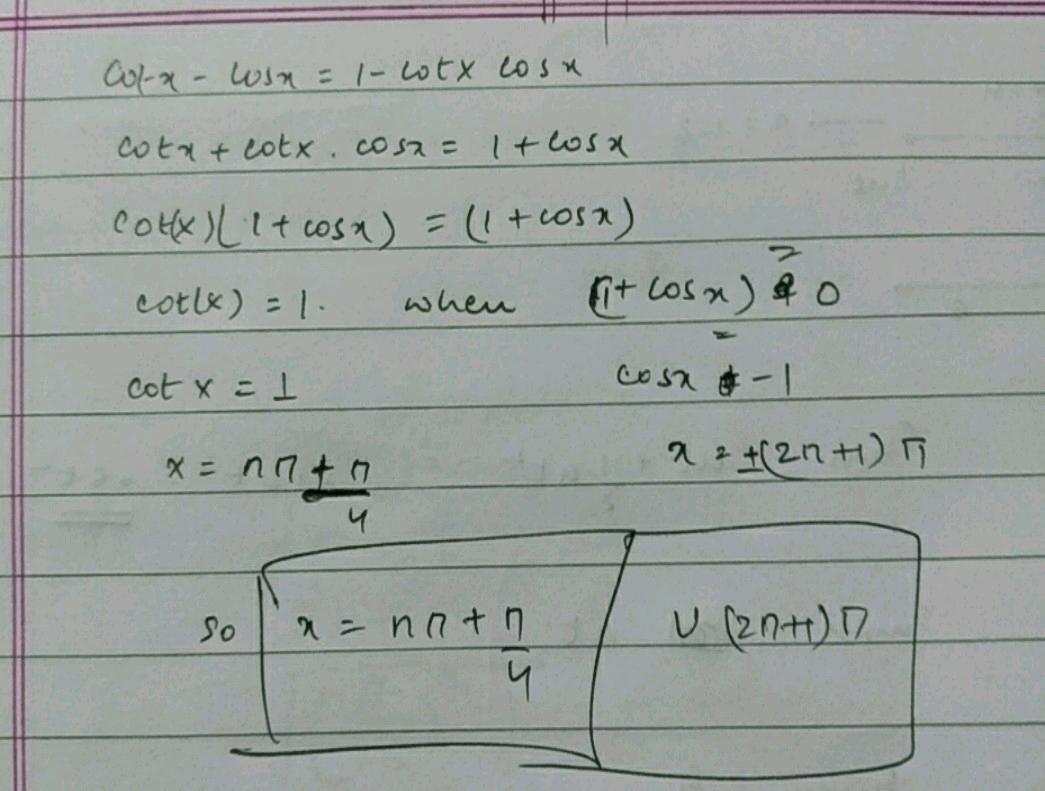 cot x - cos x = 1 - cot x cos x
cot x + cot x . cos x = 1 + cos x
cot(x) (1 + cos x) = (1 + cos x)
cot(x) = 1. when (1 + cos x) = 0
cot x = 1 cos x = -1
x = nπ + π/4 x = ±(2n+1) π
so x = nπ + π/4 ∪ (2n+1) π